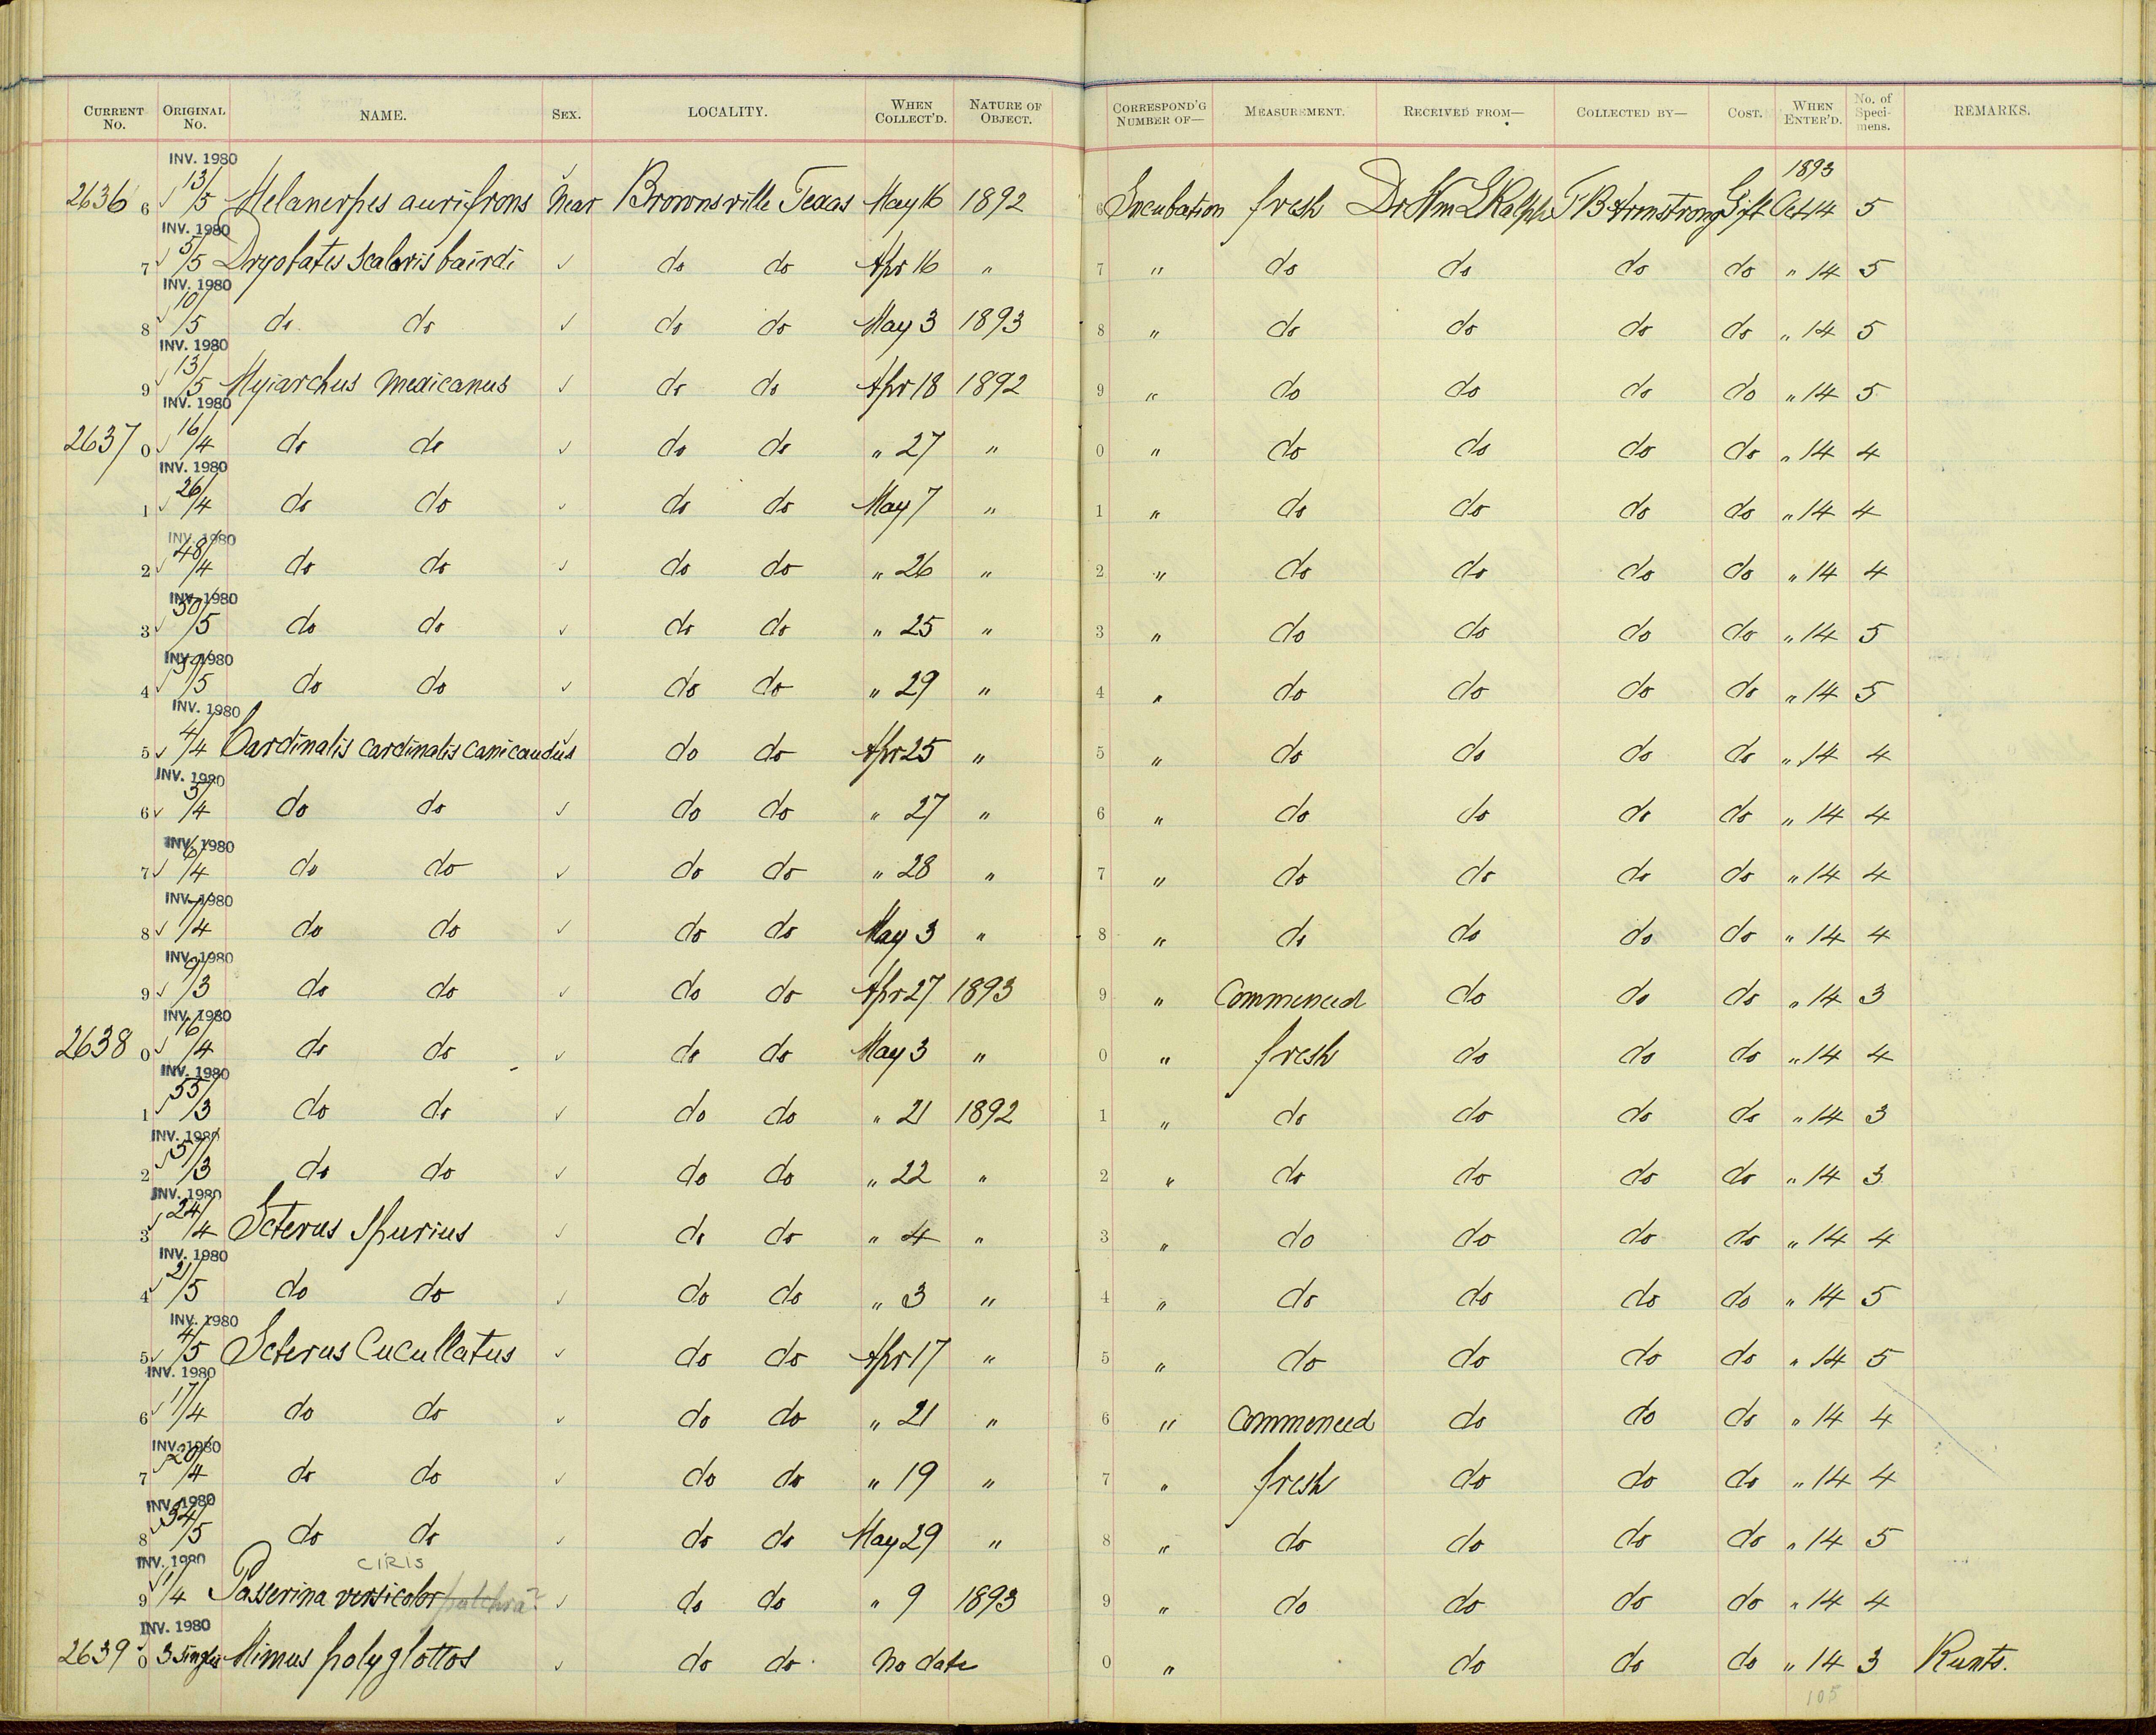 CURRENT No. ORIGINAL No. NAME. SEX. LOCALITY. WHEN COLLECT'D. NATURE OF OBJECT. CORRESPOND'G NUMBER OF— MEASUREMENT. RECEIVED FROM— COLLECTED BY— COST. WHEN ENTER'D. No. of Specimens. REMARKS.
INV. 1980 1893
2636 6 13/5 Melanerpes aurifrons Near Brownsville Texas May 16 1892 6 Incubation fresh Dr Wm L Ralph F B Armstrong Gift Oct 14 5
INV. 1980
7 5/5 Dryobates scalaris bairdi do do Apr 16 " 7 " do do do do " 14 5
INV. 1980
8 10/5 do do do do May 3 1893 8 " do do do do " 14 5
INV. 1980
9 13/5 Myiarchus mexicanus do do Apr 18 1892 9 " do do do do " 14 5
INV. 1980
2637 0 16/4 do do do do " 27 " 0 " do do do do " 14 4
INV. 1980
1 26/4 do do do do May 7 " 1 " do do do do " 14 4
INV. 1980
2 48/4 do do do do " 26 " 2 " do do do do " 14 4
INV. 1980
3 50/5 do do do do " 25 " 3 " do do do do " 14 5
INV. 1980
4 /5 do do do do " 29 " 4 " do do do do " 14 5
INV. 1980
5 4/4 Cardinalis cardinalis canicaudus do do Apr 25 " 5 " do do do do " 14 4
INV. 1980
6 5/4 do do do do " 27 " 6 " do do do do " 14 4
INV. 1980
7 6/4 do do do do " 28 " 7 " do do do do " 14 4
INV. 1980
8 7/4 do do do do May 3 " 8 " do do do do " 14 4
INV. 1980
9 9/3 do do do do Apr 27 1893 9 " Commenced do do do " 14 3
INV. 1980
2638 0 16/4 do do do do May 3 " 0 " fresh do do do " 14 4
INV. 1980
1 55/3 do do do do " 21 1892 1 " do do do do " 14 3
INV. 1980
2 57/3 do do do do " 22 " 2 " do do do do " 14 3
INV. 1980
3 24/4 Icterus spurius do do " 4 " 3 " do do do do " 14 4
INV. 1980
4 21/5 do do do do " 3 " 4 " do do do do " 14 5
INV. 1980
5 4/5 Icterus Cucullatus do do Apr 17 " 5 " do do do do " 14 5
INV. 1980
6 17/4 do do do do " 21 " 6 " Commenced do do do " 14 4
INV. 1980
7 20/4 do do do do " 19 " 7 " fresh do do do " 14 4
INV. 1980
8 34/5 do do do do May 29 " 8 " do do do do " 14 5
INV. 1980 CIRIS
9 1/4 Passerina versicolor pulchra? do do " 9 1893 9 " do do do do " 14 4
INV. 1980
2639 0 3 singles Mimus polyglottos do do No date 0 " do do do " 14 3 Runts.
105